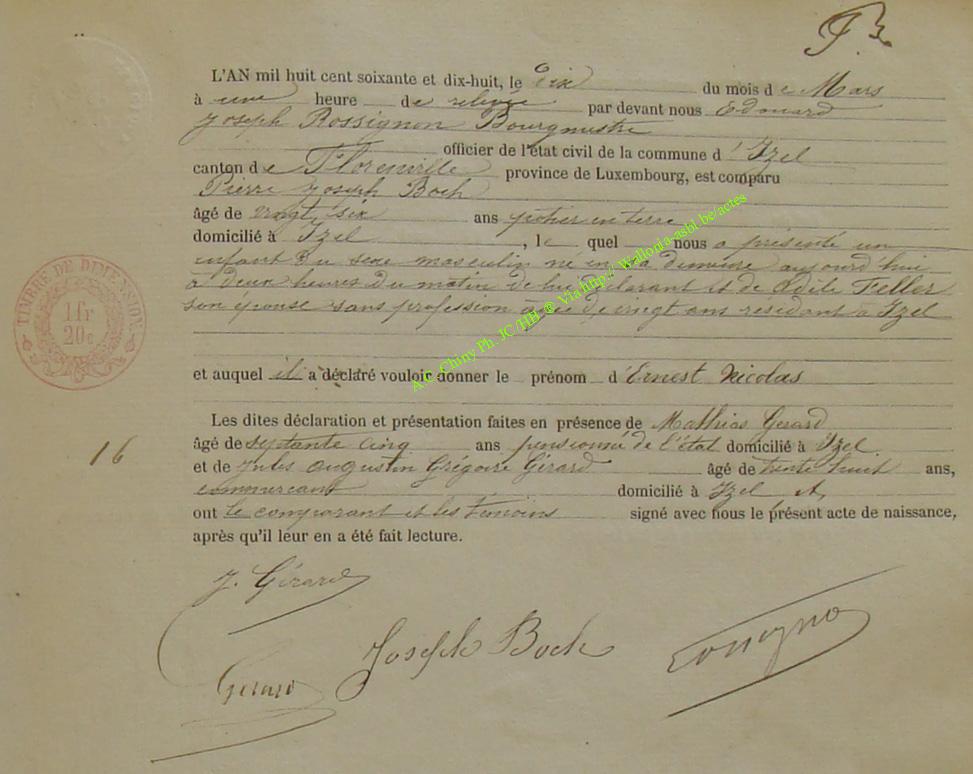 F 3
L'AN mil huit cent soixante et dix-huit, le dix du mois de Mars
à une heure de relevée par devant nous Edouard
Joseph Rossignon Bourgmestre
officier de l'état civil de la commune d'Izel
canton de Florenville province de Luxembourg, est comparu
Pierre Joseph Boch
âgé de vingt six ans potier en terre
domicilié à Izel, lequel nous a présenté un
enfant du sexe masculin né en sa demeure aujourd'hui
à deux heures du matin de lui déclarant et de Odile Feller
son épouse sans profession âgée de vingt ans résidant à Izel
et auquel il a déclaré vouloir donner le prénom d'Ernest Nicolas
Les dites déclaration et présentation faites en présence de Mathias Gerard
âgé de septante cinq ans pensionné de l'état domicilié à Izel
16
et de Jules Augustin Grégoire Gérard âgé de trente huit ans,
commerçant domicilié à Izel et
ont le comparant et les témoins signé avec nous le présent acte de naissance,
après qu'il leur en a été fait lecture.
TIMBRE DE DIMENSION
1 fr
20c
J. Gérard
Joseph Boch
Gerard
A.E. Chiny Ph. JC/HH @ Via http:// Wallonia-asbl.be/actes